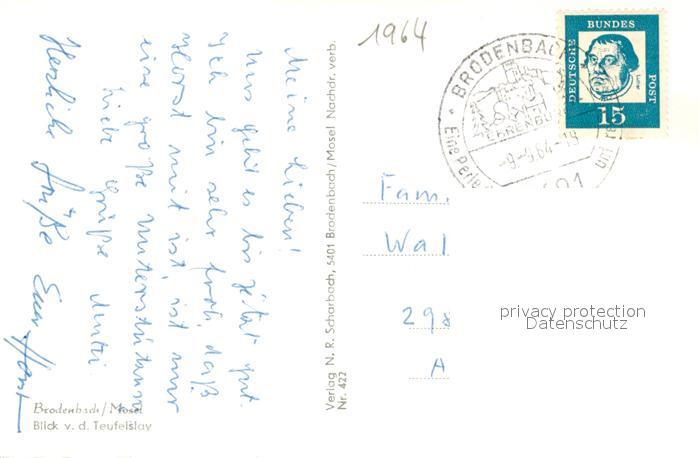 Meine Lieben!
Uns geht es bis jetzt gut.
Ich bin sehr froh, daß
Horst mit ist, ist mir
eine große Unterstützung
Liebe Grüße Mutti
Herzliche Grüße Euer Horst
Brodenbach/Mosel
Blick v. d. Teufelslay
Verlag N. R. Scharbach, 5401 Brodenbach/Mosel Nachdr. verb.
Nr. 422
1964
BRODENBACH
EHRENBURG
-9.-5.64-19
Eine Perle
DEUTSCHE BUNDES POST
Luther
15
Fam.
Wal
298
A
privacy protection
Datenschutz